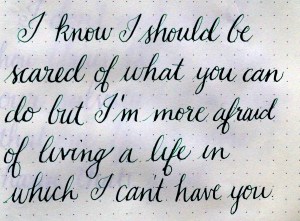 I know I should be
scared of what you can
do but I'm more afraid
of living a life in
which I can't have you.